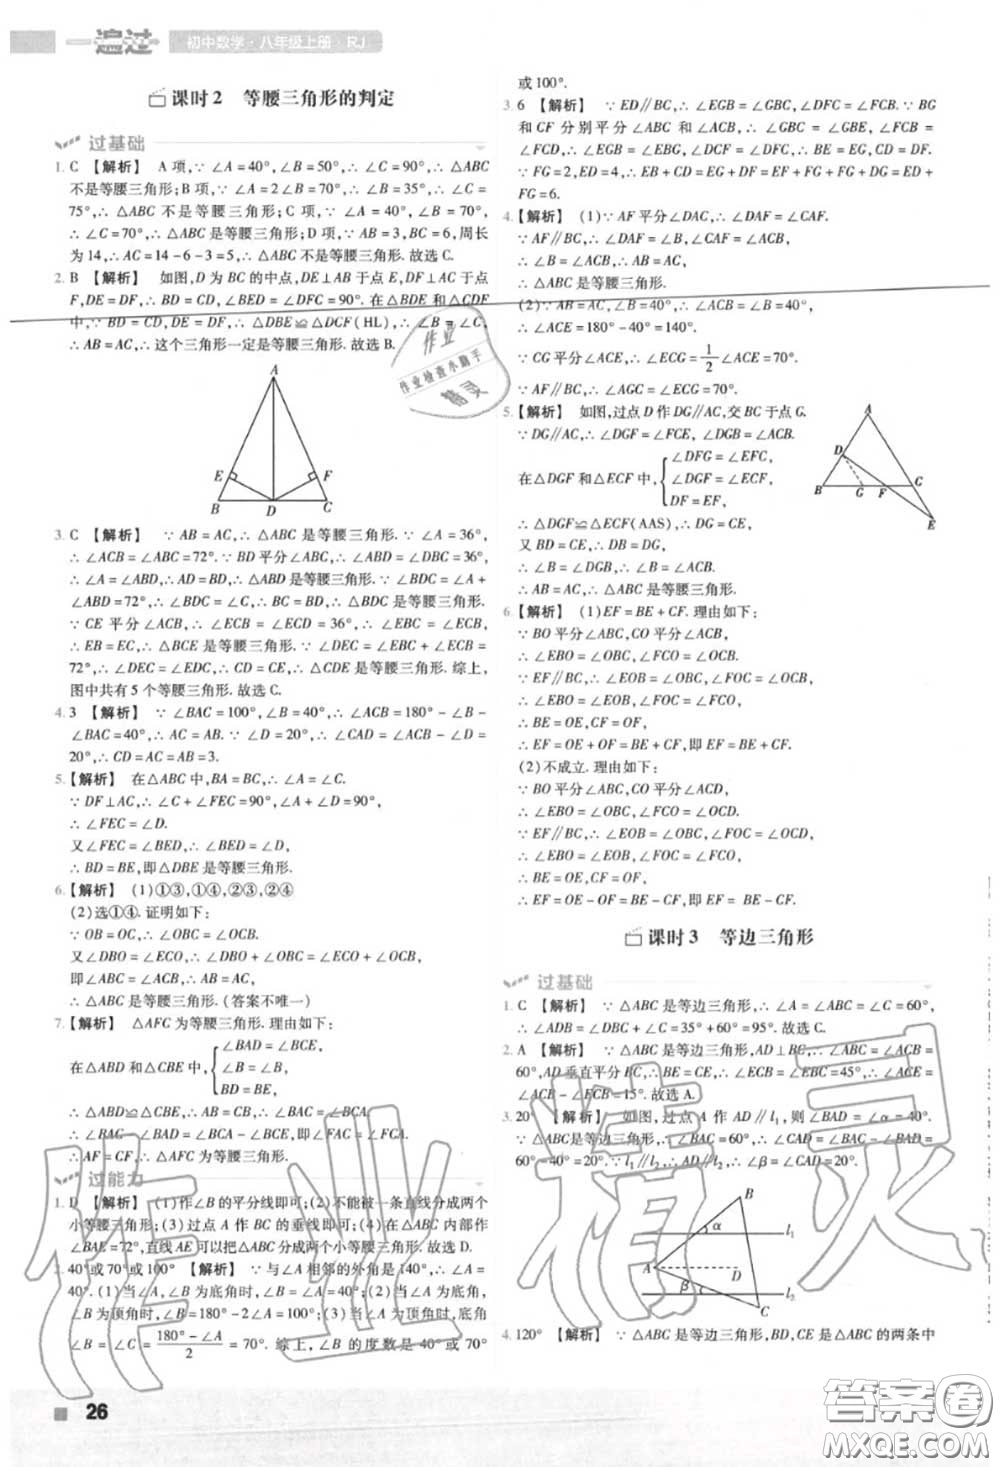 一遍过 初中数学·八年级上册·RJ
课时2 等腰三角形的判定
过基础
1. C 【解析】 A项,∵∠A=40°,∠B=50°,∴∠C=90°,∴△ABC
不是等腰三角形;B项,∵∠A=2∠B=70°,∴∠B=35°,∴∠C=
75°,∴△ABC不是等腰三角形;C项,∵∠A=40°,∠B=70°,
∴∠C=70°,∴△ABC是等腰三角形;D项,∵AB=3,BC=6,周长
为14,∴AC=14-6-3=5,∴△ABC不是等腰三角形.故选C.
2. B 【解析】 如图,D为BC的中点,DE⊥AB于点E,DF⊥AC于点
F,DE=DF,∴BD=CD,∠BED=∠DFC=90°.在△BDE和△CDF
中,∵BD=CD,DE=DF,∴△DBE≌△DCF(HL),∴∠B=∠C,
∴AB=AC,∴这个三角形一定是等腰三角形.故选B.
A
E F
B D C
3. C 【解析】 ∵AB=AC,∴△ABC是等腰三角形.∵∠A=36°,
∴∠ACB=∠ABC=72°.∵BD平分∠ABC,∴∠ABD=∠DBC=36°,
∴∠A=∠ABD,∴AD=BD,∴△ABD是等腰三角形.∵∠BDC=∠A+
∠ABD=72°,∴∠BDC=∠C,∴BC=BD,∴△BDC是等腰三角形.
∵CE平分∠ACB,∴∠ECB=∠ECD=36°,∴∠EBC=∠ECB,
∴EB=EC,∴△BCE是等腰三角形.∵∠DEC=∠EBC+∠ECB=
72°,∴∠DEC=∠EDC,∴CD=CE,∴△CDE是等腰三角形.综上,
图中共有5个等腰三角形.故选C.
4. 3 【解析】 ∵∠BAC=100°,∠B=40°,∴∠ACB=180°-∠B-
∠BAC=40°,∴AC=AB=3.∵∠D=20°,∴∠CAD=∠ACB-∠D=
20°,∴CD=AC=AB=3.
5.【解析】 在△ABC中,∵BA=BC,∴∠A=∠C.
∵DF⊥AC,∴∠C+∠FEC=90°,∴∠A+∠D=90°,
∴∠FEC=∠D.
又∠FEC=∠BED,∴∠BED=∠D,
∴BD=BE,即△DBE是等腰三角形.
6.【解析】 (1)①③,①④,②③,②④
(2)选①④.证明如下:
∵OB=OC,∴∠OBC=∠OCB.
又∠DBO=∠ECO,∴∠DBO+∠OBC=∠ECO+∠OCB,
即∠ABC=∠ACB,∴AB=AC,
∴△ABC是等腰三角形.(答案不唯一)
7.【解析】 △AFC为等腰三角形.理由如下:
在△ABD和△CBE中, { ∠BAD=∠BCE,
∠ABD=∠CBE,
BD=BE,
∴△ABD≌△CBE,∴AB=CB,∴∠BAC=∠BCA,
∴∠BAC-∠BAD=∠BCA-∠BCE,即∠FAC=∠FCA,
∴AF=CF,∴△AFC为等腰三角形.
过能力
1. D 【解析】 (1)作∠B的平分线即可;(2)不能被一条直线分成两个
小等腰三角形;(3)过点A作BC的垂线即可;(4)在△ABC内部作
∠BAE=72°,直线AE可以把△ABC分成两个小等腰三角形.故选D.
2. 40°或70°或100° 【解析】 ∵与∠A相邻的外角是140°,∴∠A=
40°.(1)当∠A,∠B为底角时,∠B=∠A=40°;(2)当∠A为底角,
∠B为顶角时,∠B=180°-2∠A=100°;(3)当∠A为顶角时,
∠B=∠C=(180°-∠A)/2=70°.综上,∠B的度数是40°或70°
或100°.
3. 6 【解析】 ∵ED∥BC,∴∠EGB=∠GBC,∠DFC=∠FCB.∵BG
和CF分别平分∠ABC和∠ACB,∴∠GBC=∠GBE,∠FCB=
∠FCD,∴∠EGB=∠EBG,∠DCF=∠DFC,∴BE=EG,CD=DF.
∵FG=2,ED=4,∴EB+CD=EG+DF=EF+FG+FG+DG=ED+
FG=6.
4.【解析】 (1)∵AF平分∠DAC,∴∠DAF=∠CAF.
∵AF∥BC,∴∠DAF=∠B,∠CAF=∠ACB,
∴∠B=∠ACB,∴AB=AC,
∴△ABC是等腰三角形.
(2)∵AB=AC,∠B=40°,∴∠ACB=∠B=40°,
∴∠ACE=180°-40°=140°.
∵CG平分∠ACE,∴∠ECG=1/2∠ACE=70°.
∵AF∥BC,∴∠AGC=∠ECG=70°.
5.【解析】 如图,过点D作DG∥AC,交BC于点G.
∵DG∥AC,∴∠DGF=∠FCE,∠DGB=∠ACB.
在△DGF和△ECF中, { ∠DFG=∠EFC,
∠DGF=∠ECF,
DF=EF,
∴△DGF≌△ECF(AAS),∴DG=CE,
又BD=CE,∴BD=DG,
∴∠B=∠DGB,∴∠B=∠ACB,
∴AB=AC,∴△ABC是等腰三角形.
A
D
B G F C
E
6.【解析】 (1)EF=BE+CF.理由如下:
∵BO平分∠ABC,CO平分∠ACB,
∴∠EBO=∠OBC,∠FCO=∠OCB.
∵EF∥BC,∴∠EOB=∠OBC,∠FOC=∠OCB,
∴∠EBO=∠EOB,∠FOC=∠FCO,
∴BE=OE,CF=OF,
∴EF=OE+OF=BE+CF,即EF=BE+CF.
(2)不成立.理由如下:
∵BO平分∠ABC,CO平分∠ACD,
∴∠EBO=∠OBC,∠FCO=∠OCD.
∵EF∥BC,∴∠EOB=∠OBC,∠FOC=∠OCD,
∴∠EBO=∠EOB,∠FOC=∠FCO,
∴BE=OE,CF=OF,
∴EF=OE-OF=BE-CF,即EF=BE-CF.
课时3 等边三角形
过基础
1. C 【解析】 ∵△ABC是等边三角形,∴∠A=∠ABC=∠C=60°,
∴∠ADB=∠DBC+∠C=35°+60°=95°.故选C.
2. A 【解析】 ∵△ABC是等边三角形,AD⊥BC,∴∠ACB=
60°,AD垂直平分BC,∴BE=CE,∴∠EBC=∠ECB=45°,∴∠ACE=
∠ACB-∠ECB=15°.故选A.
3. 20° 【解析】 如图,过点A作AD∥l₁,则∠BAD=∠α=40°.
∵△ABC是等边三角形,∴∠BAC=60°,∴∠CAD=∠BAC-∠BAD=
60°-40°=20°.∵l₁∥l₂,∴AD∥l₂,∴∠β=∠CAD=20°.
B
α l₁
A D
β l₂
C
4. 120° 【解析】 ∵△ABC是等边三角形,BD,CE是△ABC的两条中
26
作业
作业检查小助手
精灵
作业精灵
答案圈
MXQE.COM